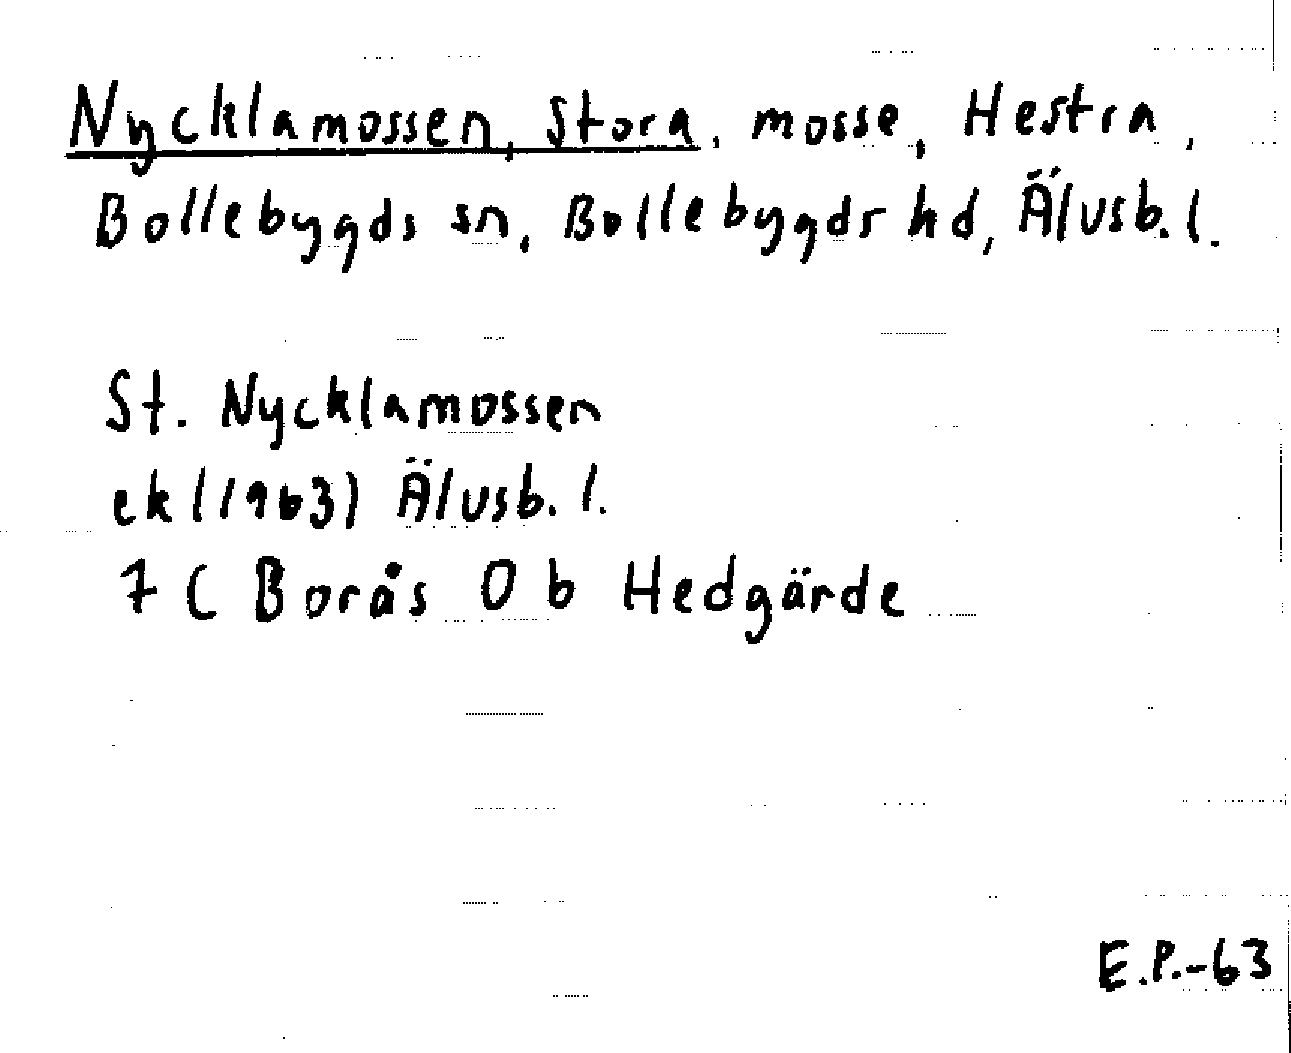 Nycklamossen, Stora, mosse, Hestra,
Bollebygds sn, Bollebygds hd, Älvsb. l.
St. Nycklamossen
ek (1963) Älvsb. l.
7 C Borås 0 b Hedgärde
E.P.-63